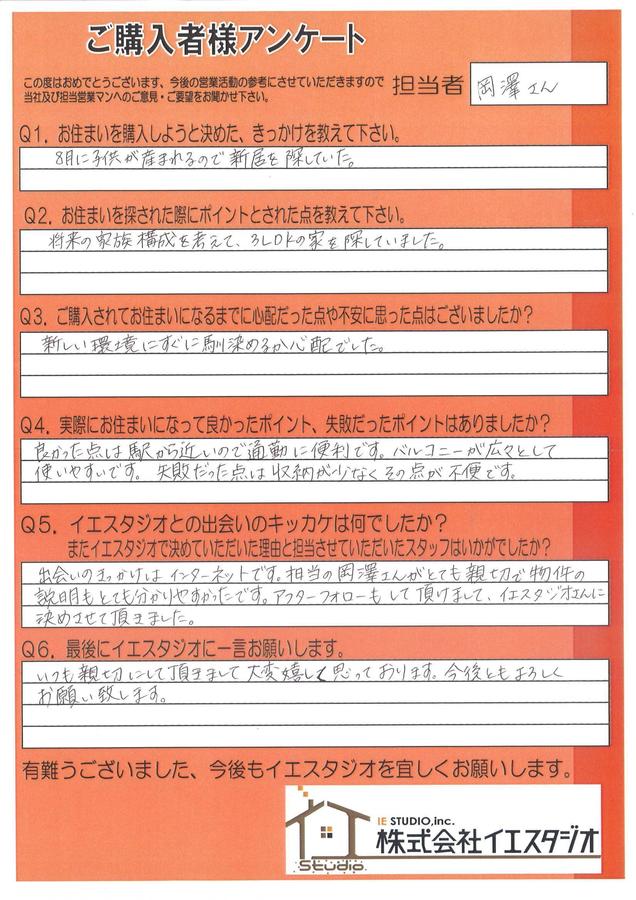 ご購入者様アンケート
この度はおめでとうございます、今後の営業活動の参考にさせていただきますので
当社及び担当営業マンへのご意見・ご要望をお聞かせ下さい。
担当者 岡澤さん
Q1．お住まいを購入しようと決めた、きっかけを教えて下さい。
8月に子供が産まれるので新居を探していた。
Q2．お住まいを探された際にポイントとされた点を教えて下さい。
将来の家族構成を考えて、3LDKの家を探していました。
Q3．ご購入されてお住まいになるまでに心配だった点や不安に思った点はございましたか？
新しい環境にすぐに馴染めるか心配でした。
Q4．実際にお住まいになって良かったポイント、失敗だったポイントはありましたか？
良かった点は駅から近いので通勤に便利です。バルコニーが広々として
使いやすいです。失敗だった点は収納が少なくその点が不便です。
Q5．イエスタジオとの出会いのキッカケは何でしたか？
またイエスタジオで決めていただいた理由と担当させていただいたスタッフはいかがでしたか？
出会いのきっかけはインターネットです。担当の岡澤さんがとても親切で物件の
説明もとても分かりやすかったです。アフターフォローもして頂けまして、イエスタジオさんに
決めさせて頂きました。
Q6．最後にイエスタジオに一言お願いします。
いつも親切にして頂きまして大変嬉しく思っております。今後ともよろしく
お願い致します。
有難うございました、今後もイエスタジオを宜しくお願いします。
IE STUDIO,inc.
株式会社イエスタジオ
Studio